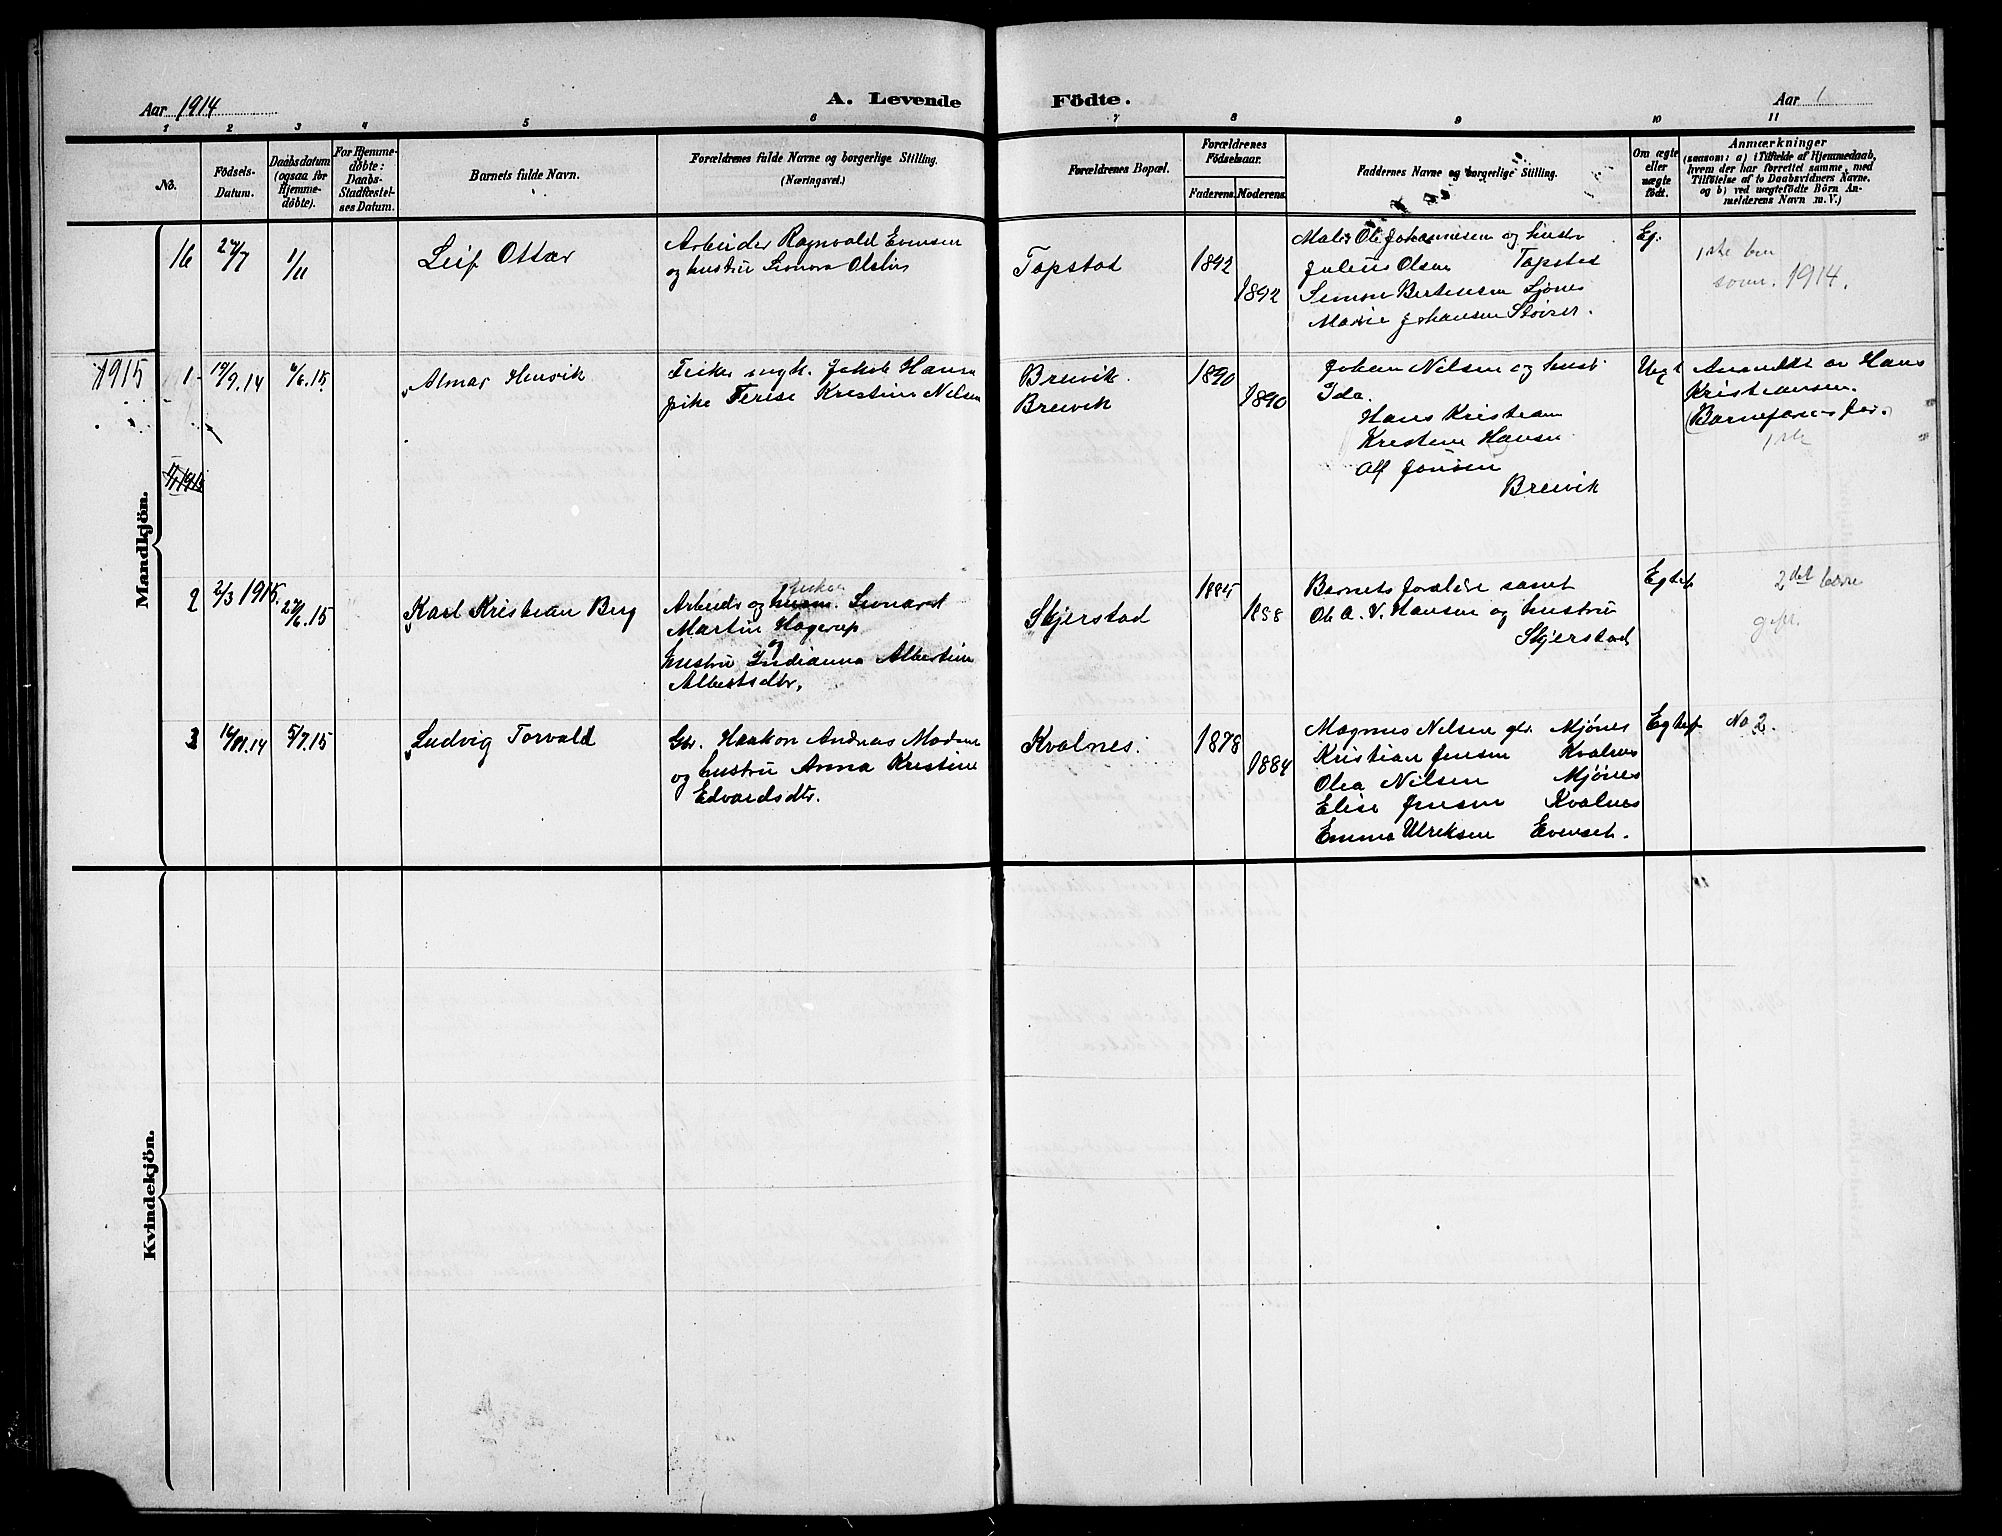 Aar 1914
A. Levende
Födte.
Aar 1
1 2 3 4 5 6 7 8 9 10 11
No.
Födsels-
Datum.
Daabsdatum
(ogsaa for
Hjemme-
döbte).
For Hjemme-
döbte:
Daabs-
Stadfæstel-
ses Datum.
Barnets fulde Navn.
Forældrenes fulde Navne og borgerlige Stilling.
(Næringsvei.)
Forældrenes Bopæl.
Forældrenes
Födselsaar.
Faderens.
Moderens.
Faddernes Navne og borgerlige Stilling.
Om ægte
eller
uægte
født.
Anmærkninger
(saasom: a) i Tilfælde af Hjemmedaab,
hvem der har forrettet samme, med
Tilföielse af to Daabsvidners Navne,
og b) ved uægtefödte Börn An-
melderens Navn m. V.)
Mandkjön.
16
27/7
1/11
Leif Ottar
Arbeider Ragnvald Evensen
og hustru Leonora Olsdtr
Topstad
1892
1892
Maler Ole Johannesen og hustr
Julius Olsen Topstad
Simon Bertensen Ljønes
Marie Johansen Støvset.
Eg.
1ste
1914.
1915
1
19/9.14
4/6.15
Almar Henrik
Fisker ungk. Jakob Hansen
pike Terese Kristine Nilsen
Breivik.
Breivik
1890
1890
Johan Nilsen og hust
Ida.
Hans Kristian
Kristine Hansen
Alf Jensen
Breivik
Uegt
Anmeldt av Hans
Kristiansen.
(Barnefarens far.
1ste
1/1 1915
2
2/3 1915.
27/6.15
Karl Kristian Berg
fisker
Arbeidr og husm. Leonard
Martin Hagerup
og
hustru Indianna Albertine
Albertsdtr.
Skjerstad
1885
1888
Barnets foreldre samt
Ole A. V. Hansen og hustru
Skjerstad
Egtef
2det barn
3
14/11.14
5/7.15
Ludvig Torvald
Gbr. Haakon Andreas Madsen
og hustru Anna Kristine
Edvardsdtr.
Kvalnes.
1878
1884
Magnus Nilsen gbr. Mjønes
Kristian Jensen Kvalnes
Olea Nilsen Mjønes
Elise Jensen Kvalnes
Emma Ulriksen Evenset.
Egtef
No 2.
Kvindekjön.